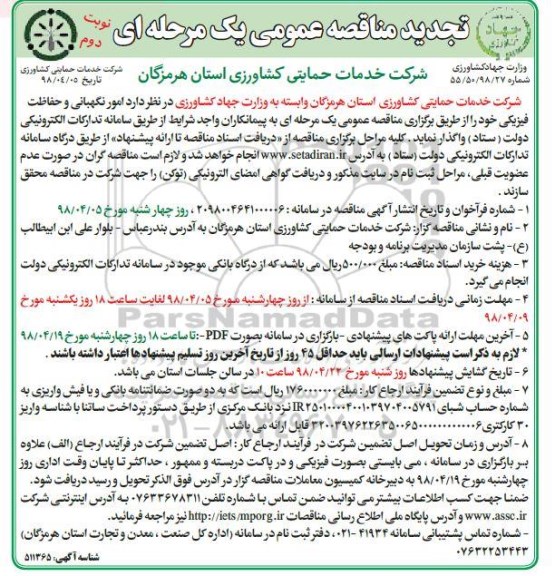 تجدید مناقصه عمومی یک مرحله ای
نوبت دوم
وزارت جهادکشاورزی
شماره ۵۵/۵۰/۹۸/۲۷
شرکت خدمات حمایتی کشاورزی استان هرمزگان
شرکت خدمات حمایتی کشاورزی
تاریخ ۹۸/۰۴/۰۵
شرکت خدمات حمایتی کشاورزی استان هرمزگان وابسته به وزارت جهاد کشاورزی در نظر دارد امور نگهبانی و حفاظت
فیزیکی خود را از طریق برگزاری مناقصه عمومی یک مرحله ای به پیمانکاران واجد شرایط از طریق سامانه تدارکات الکترونیکی
دولت ( ستاد) واگذار نماید . کلیه مراحل برگزاری مناقصه از «دریافت اسناد مناقصه تا ارائه پیشنهاد» از طریق درگاه سامانه
تدارکات الکترونیکی دولت (ستاد) به آدرس www.setadiran.ir انجام خواهد شد و لازم است مناقصه گران در صورت عدم
عضویت قبلی ، مراحل ثبت نام در سایت مذکور و دریافت گواهی امضای الترونیکی (توکن) را جهت شرکت در مناقصه محقق
سازند .
۱ - شماره فرآخوان و تاریخ انتشار آگهی مناقصه در سامانه : ۲۰۹۸۰۰۴۶۴۱۰۰۰۰۰۶ ، روز چهار شنبه مورخ ۹۸/۰۴/۰۵
۲ - نام و نشانی مناقصه گزار: شرکت خدمات حمایتی کشاورزی استان هرمزگان به آدرس بندرعباس - بلوار علی ابن ابیطالب
(ع)- پشت سازمان مدیریت برنامه و بودجه
۳ - هزینه خرید اسناد مناقصه: مبلغ ۵۰۰/۰۰۰ ریال می باشد که از درگاه بانکی موجود در سامانه تدارکات الکترونیکی دولت
انجام می گیرد.
۴ - مهلت زمانی دریافت اسناد مناقصه از سامانه : از روز چهارشنبه مورخ ۹۸/۰۴/۰۵ لغایت ساعت ۱۸ روز یکشنبه مورخ
۹۸/۰۴/۰۹
۵ - آخرین مهلت ارائه پاکت های پیشنهادی -بارگزاری در سامانه بصورت PDF -: تا ساعت ۱۸ روز چهارشنبه مورخ ۹۸/۰۴/۱۹
* لازم به ذکر است پیشنهادات ارسالی باید حداقل ۴۵ روز از تاریخ آخرین روز تسلیم پیشنهادها اعتبار داشته باشند .
۶ - تاریخ گشایش پیشنهادها روز شنبه مورخ ۹۸/۰۴/۲۲ ساعت ۱۰ در سالن جلسات استان می باشد.
۷ - مبلغ و نوع تضمین فرآیند ارجاع کار : مبلغ ۱۷۶۰۰۰۰۰۰۰ ریال است که به دو صورت ضمانتنامه بانکی و یا فیش واریزی به
نزد بانک مرکزی از طریق دستور پرداخت ساتنا با شناسه واریز
۸ - آدرس و زمان تحویل اصل تضمین شرکت در فرآیند ارجاع کار : اصل تضمین شرکت در فرآیند ارجاع (الف) علاوه
بر بارگزاری در سامانه ، می بایستی بصورت فیزیکی و در پاکت دربسته و ممهور ، حداکثر تا پایان وقت اداری روز
چهارشنبه مورخ ۹۸/۰۴/۱۹ به دبیرخانه کمیسیون معاملات مناقصه گزار در آدرس فوق الذکر تحویل و رسید دریافت شود.
ضمنا جهت کسب اطلاعات بیشتر می توانید ضمن تماس با شماره تلفن ۰۷۶۳۳۶۷۸۳۱۱ به آدرس اینترنتی شرکت
www.assc.ir و آدرس پایگاه ملی اطلاع رسانی مناقصات http://iets/mporg.ir نیز مراجعه فرمائید.
- شماره تماس پشتیبانی سامانه ۴۱۹۳۴ -۰۲۱، دفتر ثبت نام در سامانه (اداره کل صنعت ، معدن و تجارت استان هرمزگان)
۰۷۶۳۲۲۵۳۴۴۳
شناسه آگهی: ۵۱۱۳۶۵
ParsNamadData